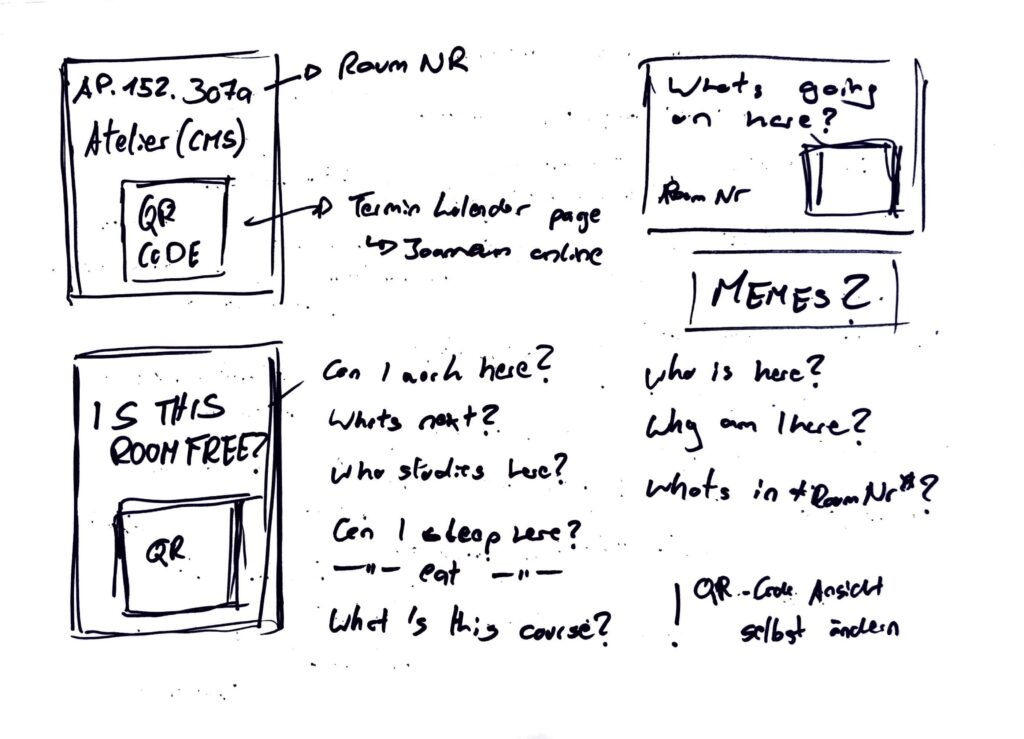 AP.152.307a
Atelier (CMS)
QR
CODE
Raum NR
Termin kalender page
Joanneum online
Whats going
on here?
Room Nr
MEMES?
IS THIS
ROOM FREE?
QR
Can I work here?
Whats next?
Who studies here?
Can I sleep here?
—"— eat —"—
What's this course?
Who is here?
Why am I here?
Whats in *Room Nr*?
! QR-Code Ansicht
selbst ändern